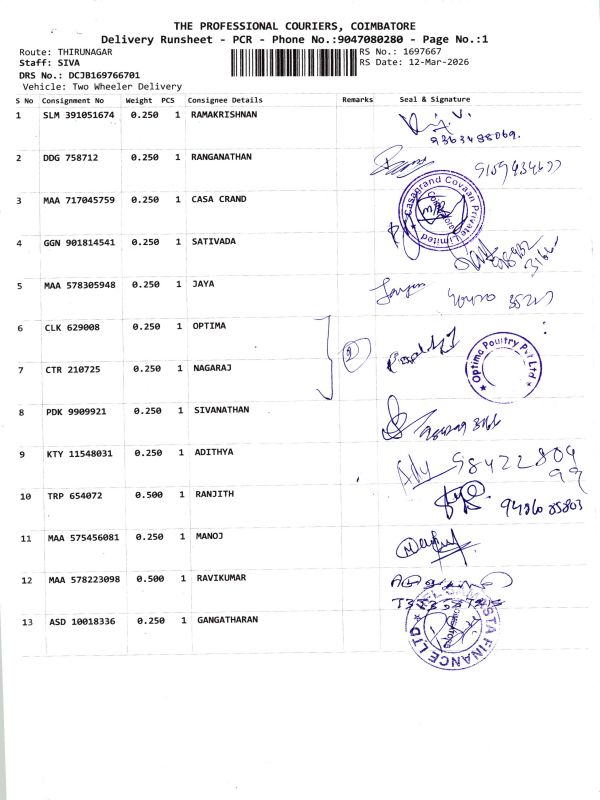 THE PROFESSIONAL COURIERS, COIMBATORE
Delivery Runsheet - PCR - Phone No.:9047080280 - Page No.:1
Route: THIRUNAGAR RS No.: 1697667
Staff: SIVA RS Date: 12-Mar-2026
DRS No.: DCJB169766701
Vehicle: Two Wheeler Delivery
S No Consignment No Weight PCS Consignee Details Remarks Seal & Signature
1 SLM 391051674 0.250 1 RAMAKRISHNAN
9363488069.
2 DDG 758712 0.250 1 RANGANATHAN
3 MAA 717045759 0.250 1 CASA CRAND
Casagrand Covaan Private Limited
4 GGN 901814541 0.250 1 SATIVADA
5 MAA 578305948 0.250 1 JAYA
6 CLK 629008 0.250 1 OPTIMA
Optima Poultry Pvt Ltd
7 CTR 210725 0.250 1 NAGARAJ
8 PDK 9909921 0.250 1 SIVANATHAN
9 KTY 11548031 0.250 1 ADITHYA
Ady 98422809
99
10 TRP 654072 0.500 1 RANJITH
94860 85803
11 MAA 575456081 0.250 1 MANOJ
12 MAA 578223098 0.500 1 RAVIKUMAR
13 ASD 10018336 0.250 1 GANGATHARAN
FINANCE LTD